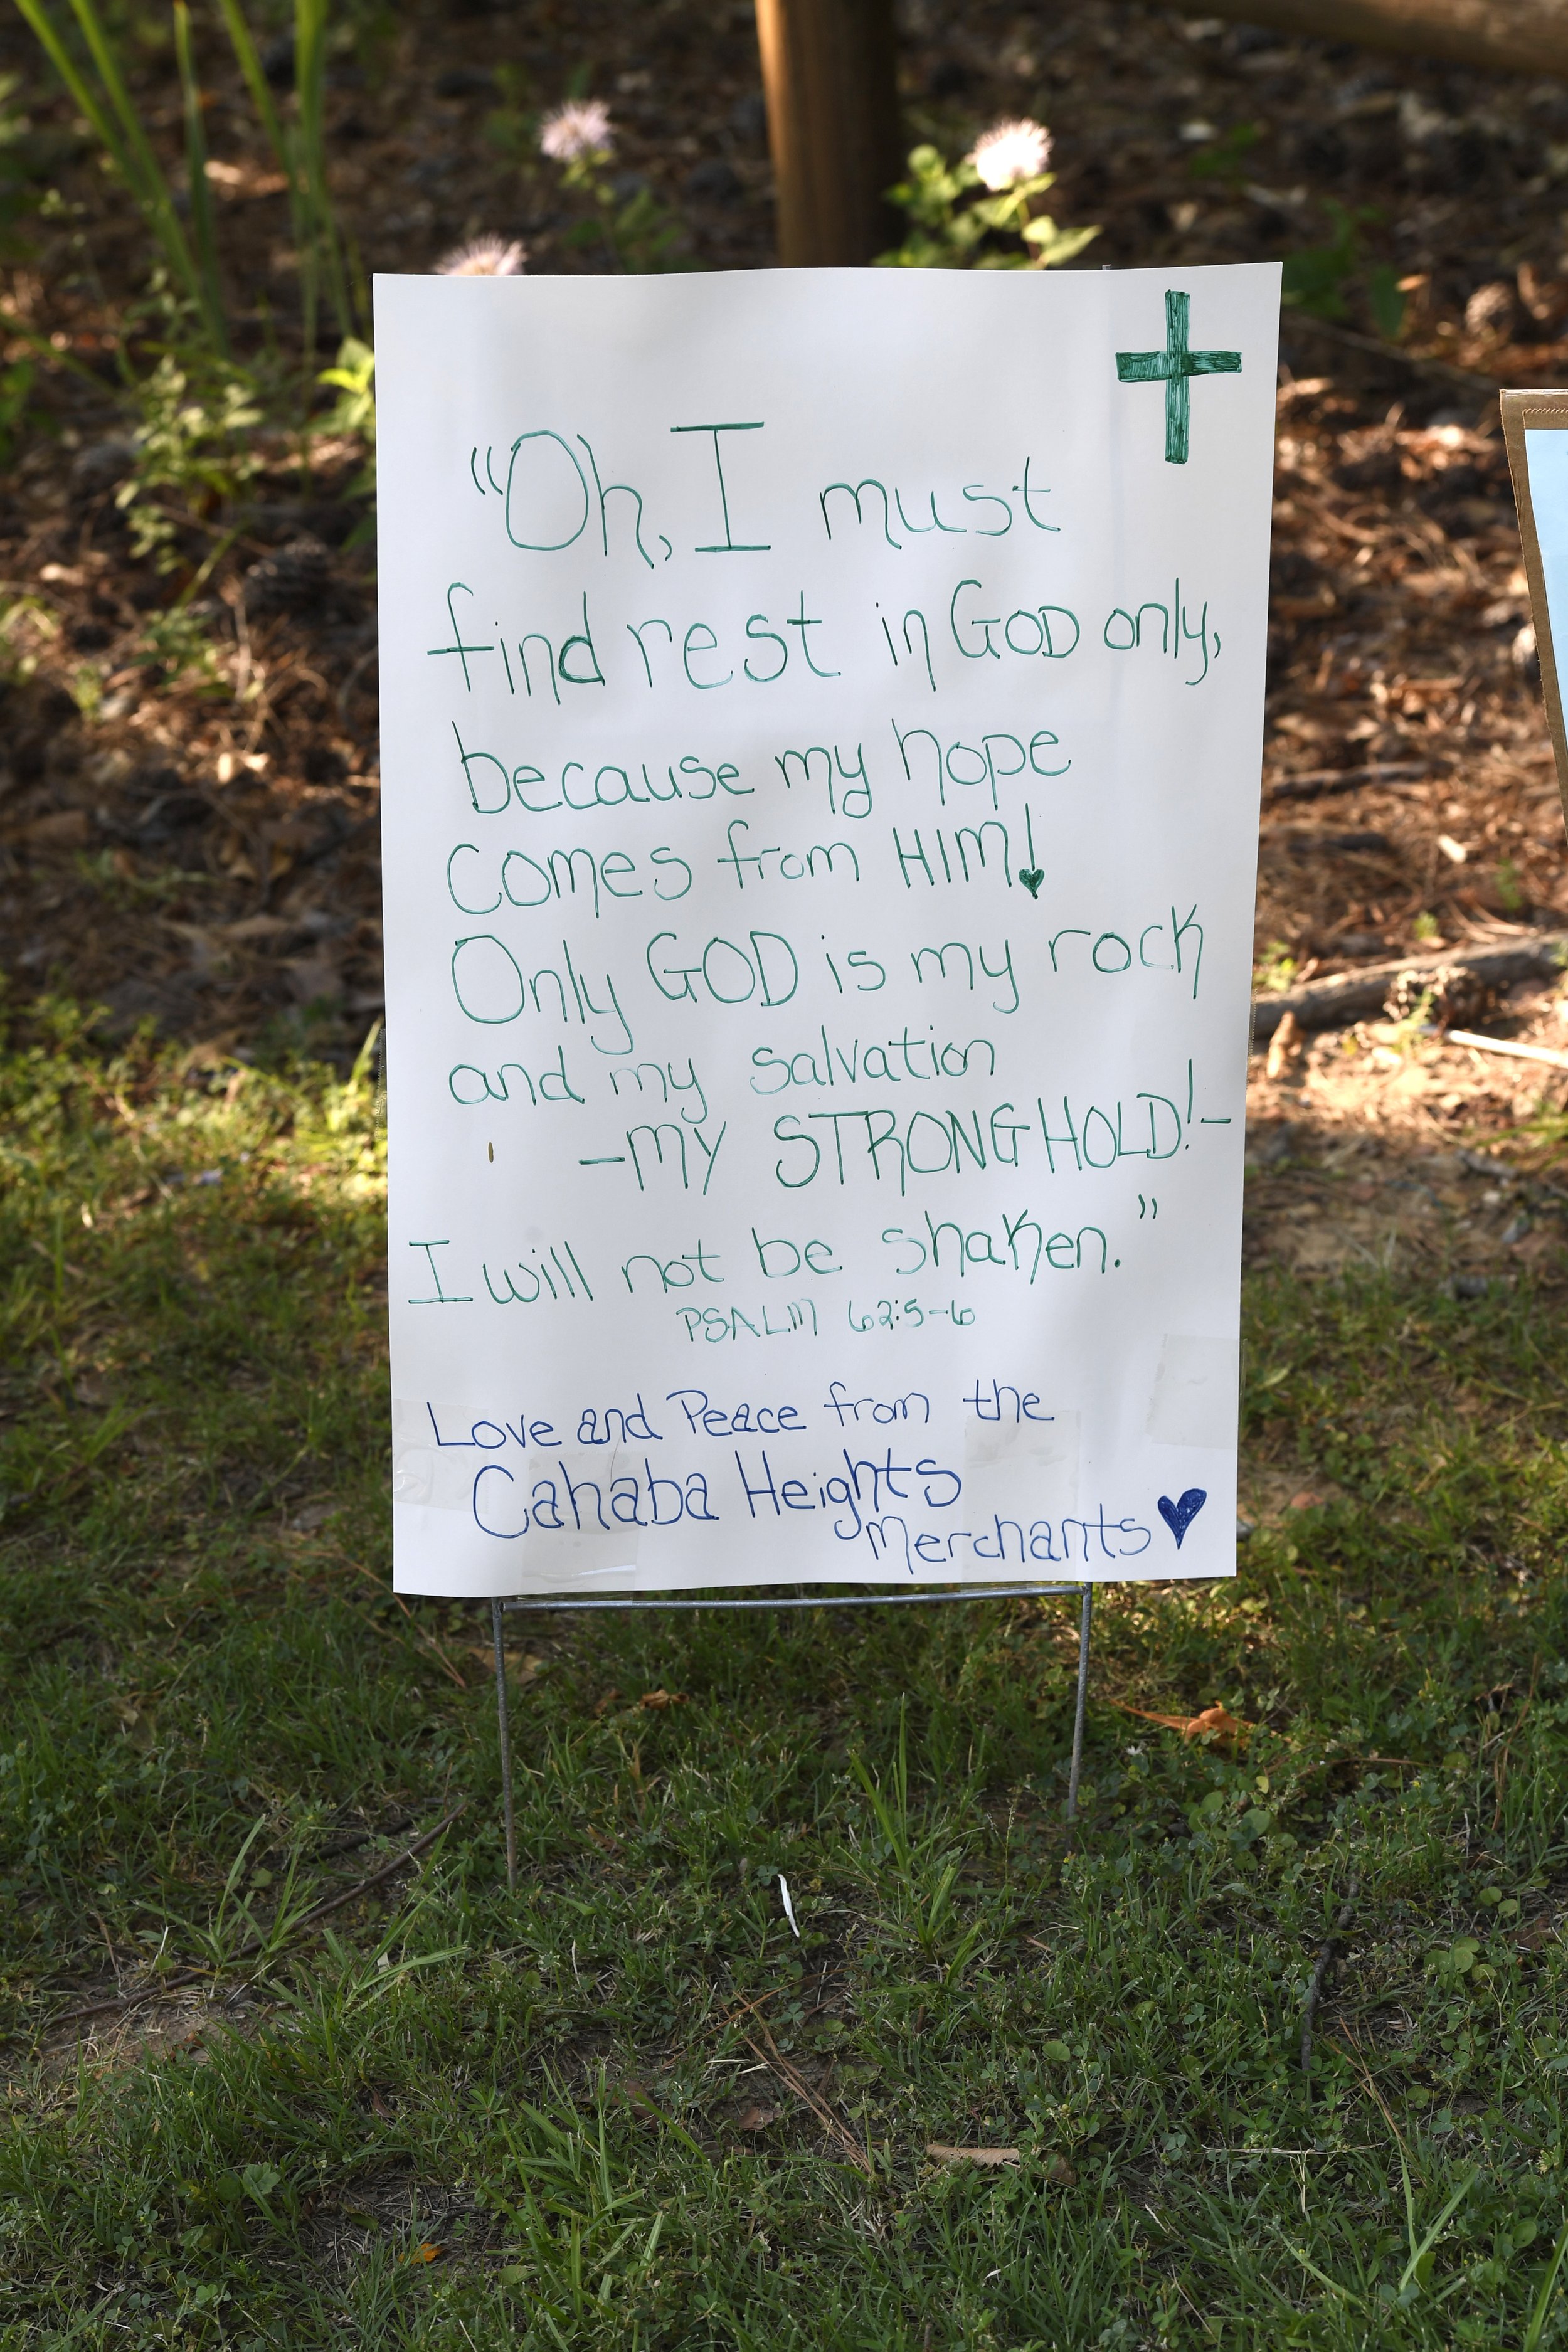 "Oh, I must
find rest in GOD only,
because my hope
comes from HIM!
Only GOD is my rock
and my salvation
-MY STRONGHOLD!-
I will not be shaken."
PSALM 62:5-6
Love and Peace from the
Cahaba Heights
Merchants